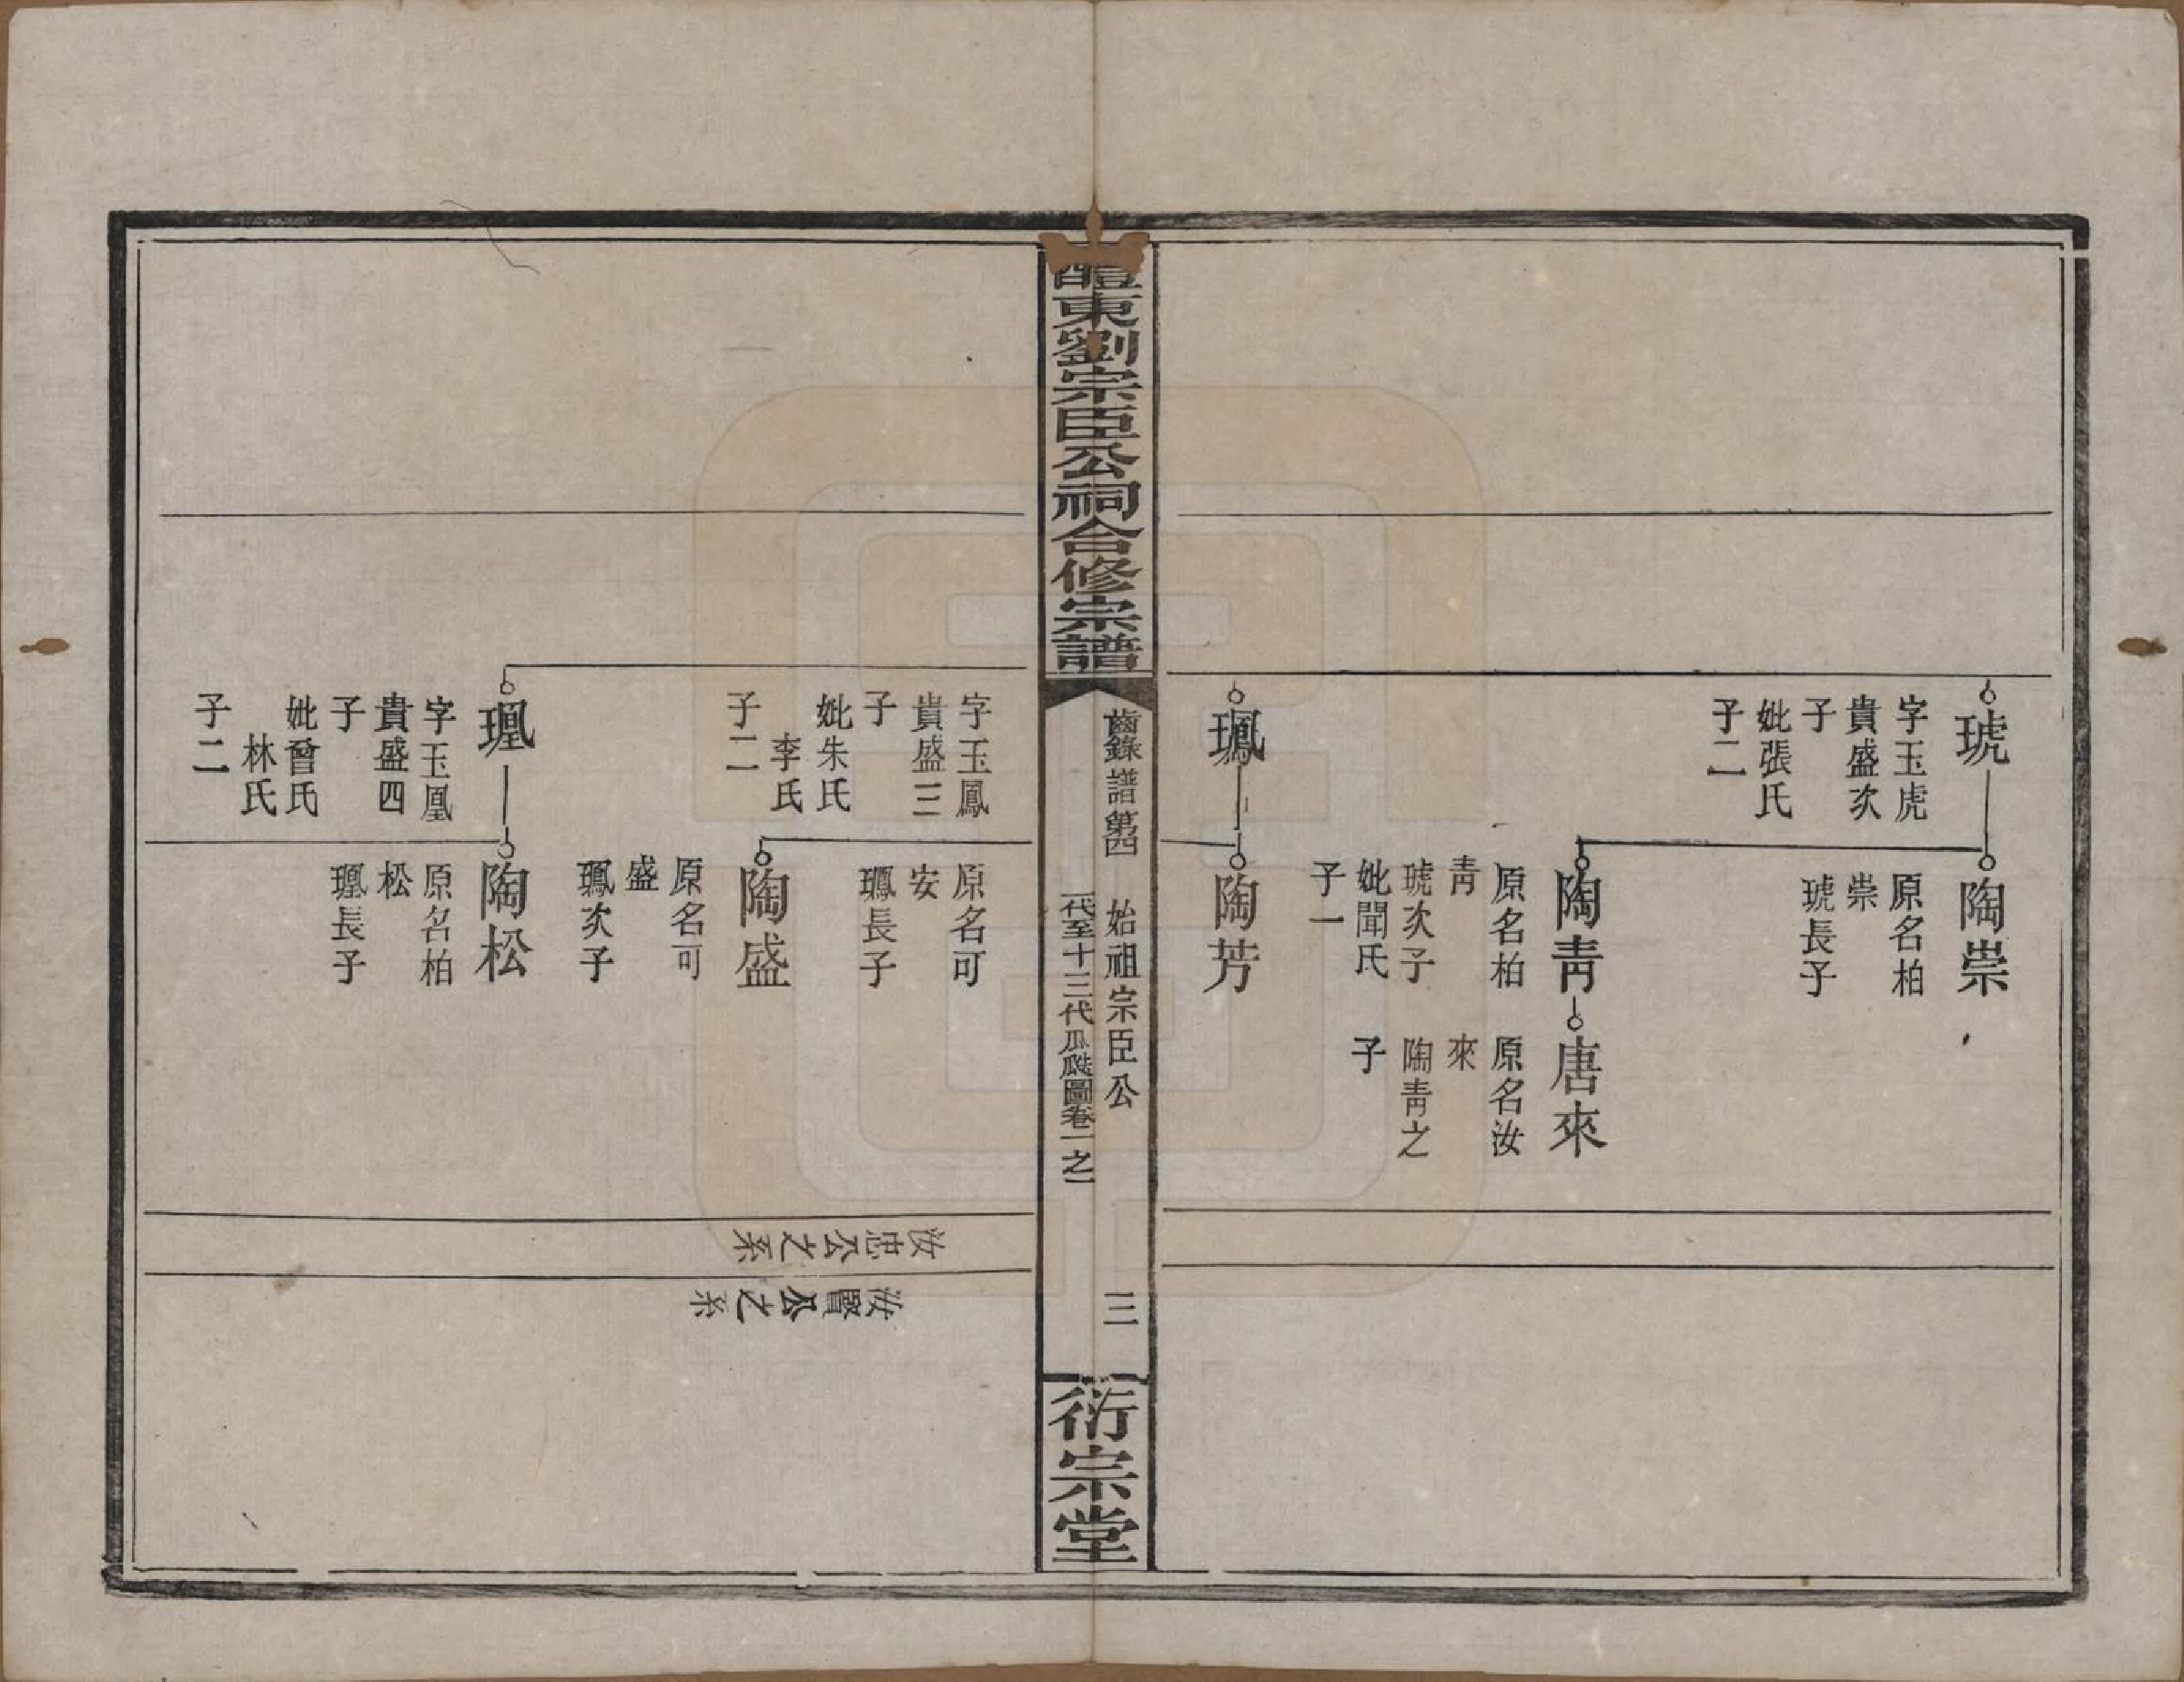 琥
字玉虎
貴盛次
子
妣張氏
子二
陶崇
原名柏
崇
琥長子
陶青
原名柏
青
琥次子
妣聞氏
子一
唐來
原名汝
來
陶青之
子
陶芳
醴東劉宗臣公祠合修宗譜
齒錄譜第四 始祖宗臣公
一代至十三代瓜瓞圖卷一之一
三
衍宗堂
字玉鳳
貴盛三
子
妣朱氏
李氏
子二
原名可
安
長子
陶盛
原名可
盛
次子
字玉凰
貴盛四
子
妣曾氏
林氏
子二
陶松
原名柏
松
長子
汝忠公之系
汝賢公之系